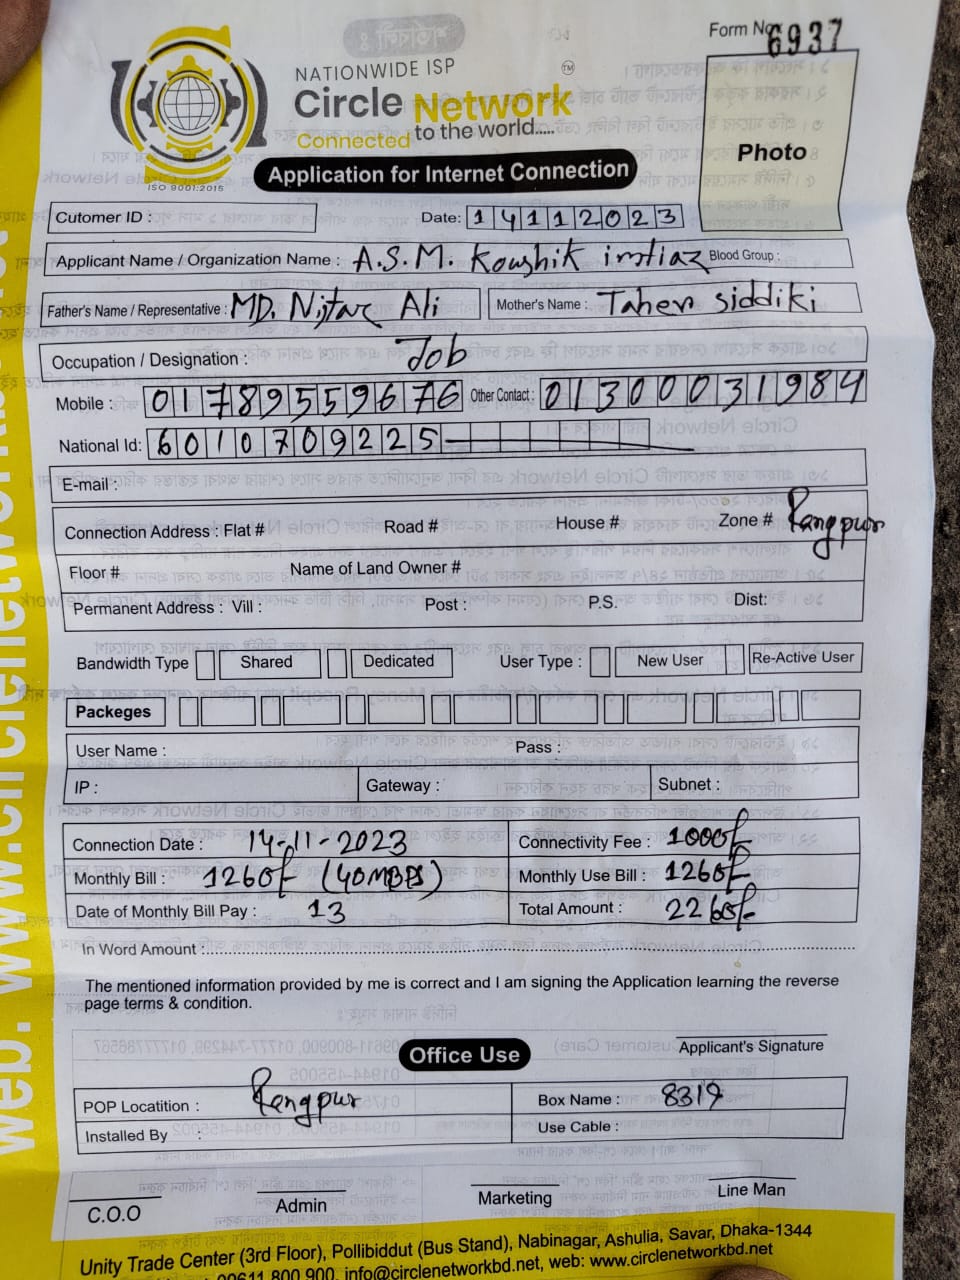 Form No. 6937
NATIONWIDE ISP
TM
Circle Network
Connected to the world.....
ISO 9001:2015
Application for Internet Connection
Photo
Cutomer ID : Date: 14112023
Applicant Name / Organization Name : A.S.M. Koushik imtiaz Blood Group :
Father's Name / Representative : MD. Nijtar Ali Mother's Name : Taher siddiki
Occupation / Designation : Job
Mobile : 01789559676 Other Contact : 01300031984
National Id: 6010709225
E-mail :
Connection Address : Flat # Road # House # Zone # Rangpur
Floor # Name of Land Owner #
Permanent Address : Vill : Post : P.S. Dist:
Bandwidth Type Shared Dedicated User Type : New User Re-Active User
Packeges
User Name : Pass :
IP : Gateway : Subnet :
Connection Date : 14-11-2023 Connectivity Fee : 1000/-
Monthly Bill : 1260/- (40MBPS) Monthly Use Bill : 1260/-
Date of Monthly Bill Pay : 13 Total Amount : 2260/-
In Word Amount :
The mentioned information provided by me is correct and I am signing the Application learning the reverse
page terms & condition.
Applicant's Signature
Office Use
POP Locatition : Rangpur Box Name : 8319
Installed By : Use Cable :
C.O.O Admin Marketing Line Man
Unity Trade Center (3rd Floor), Pollibiddut (Bus Stand), Nabinagar, Ashulia, Savar, Dhaka-1344
09611 800 900, info@circlenetworkbd.net, web: www.circlenetworkbd.net
web: www.circlenetworkbd.net